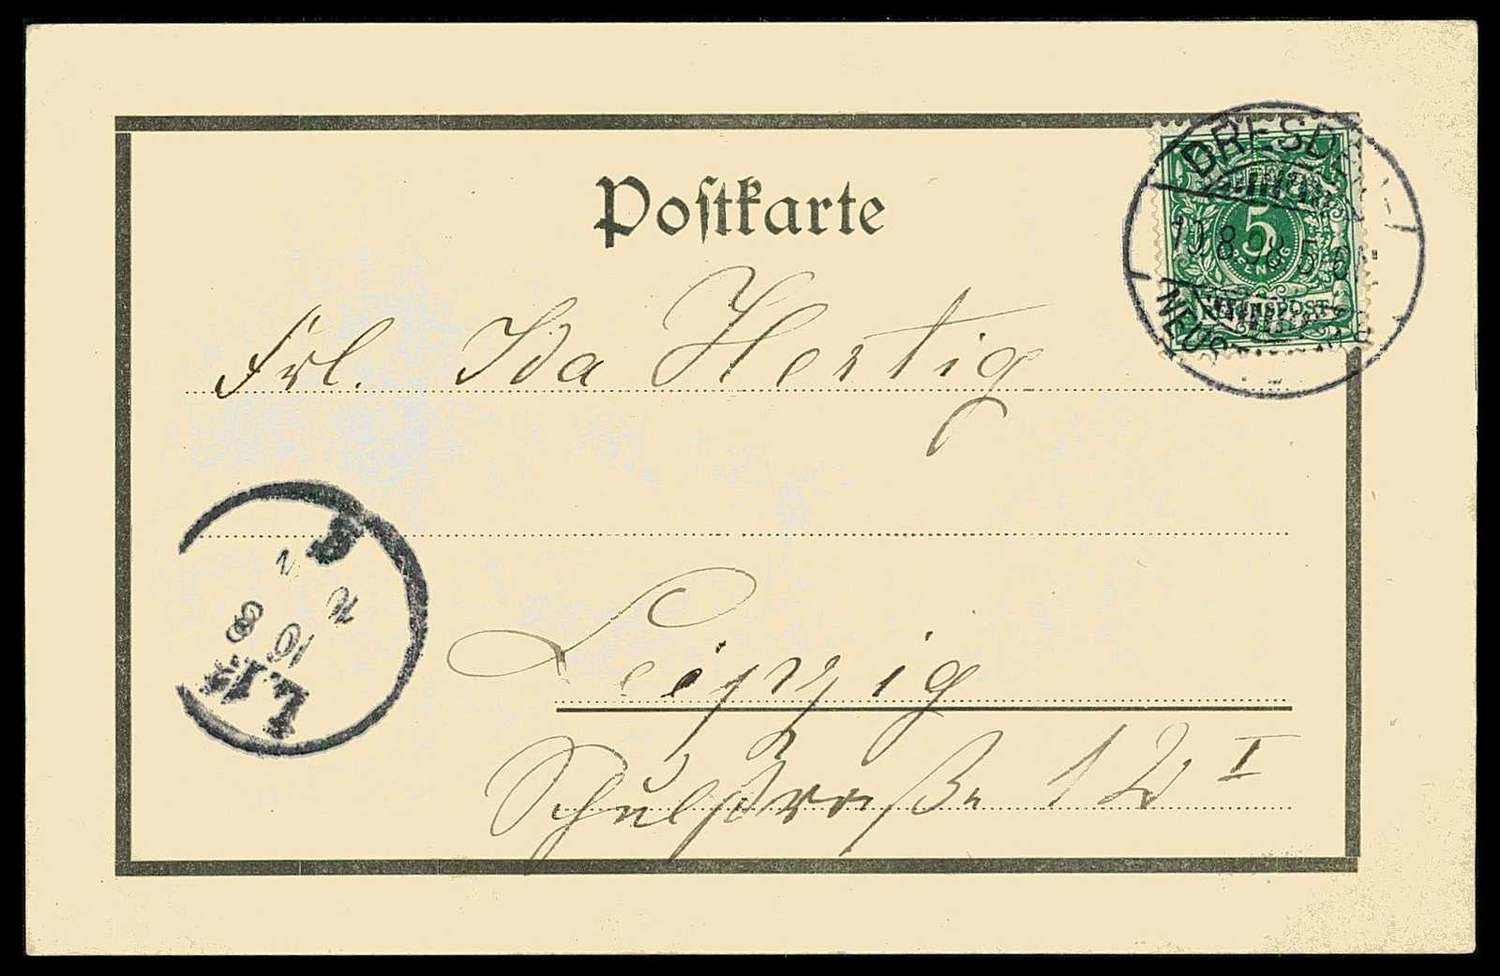 Postkarte
DRESDEN-
10.8.98.5-6N.
NEUST
5
PFENNIG
REICHSPOST
Frl. Ida Hertig
Leipzig
Schulstraße 12 I
10 8